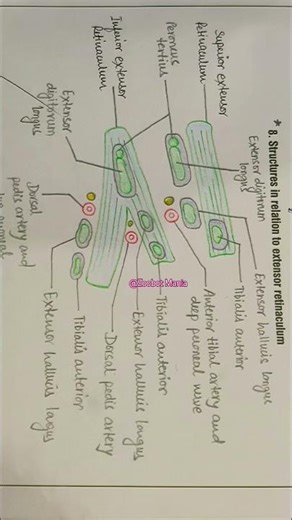 * 8. Structures in relation to extensor retinaculum
Superior extensor
Retinaculum
Peroneus
tertius
Inferior extensor
Retinaculum
Extensor
digitorum
longus
Extensor digitorum
longus
Extensor hallucis longus
Tibialis anterior
Anterior tibial artery and
deep peroneal nerve
Tibialis anterior
Extensor hallucis longus
Dorsal pedis artery
Tibialis anterior
Extensor hallucis longus
Dorsal
pedis artery and
@Doobox Mania